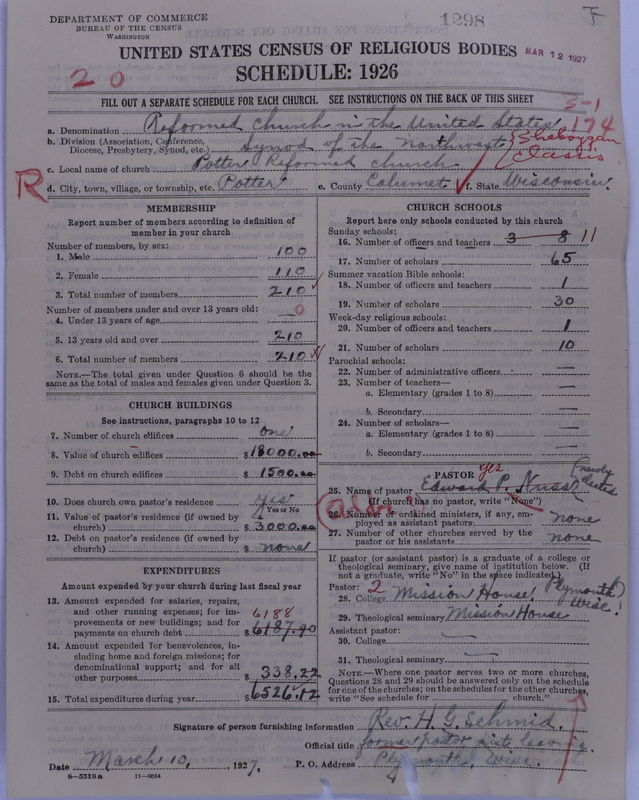 DEPARTMENT OF COMMERCE
BUREAU OF THE CENSUS
WASHINGTON
1298
UNITED STATES CENSUS OF RELIGIOUS BODIES
MAR 12 1927
20
SCHEDULE: 1926
FILL OUT A SEPARATE SCHEDULE FOR EACH CHURCH. SEE INSTRUCTIONS ON THE BACK OF THIS SHEET
S-1
174
a. Denomination Reformed Church in the United States
b. Division (Association, Conference, Diocese, Presbytery, Synod, etc.) Synod of the Northwest Sheboygan Classis
c. Local name of church Potter Reformed Church
R
d. City, town, village, or township, etc. Potter e. County Calumet f. State Wisconsin
MEMBERSHIP
Report number of members according to definition of
member in your church
Number of members, by sex:
1. Male 100
2. Female 110
3. Total number of members 210
Number of members under and over 13 years old:
4. Under 13 years of age 0
5. 13 years old and over 210
6. Total number of members 210
NOTE.—The total given under Question 6 should be
same as the total of males and females given under Question 3.
CHURCH BUILDINGS
See instructions, paragraphs 10 to 12
7. Number of church edifices one
8. Value of church edifices $18000.00
9. Debt on church edifices $1500.00
10. Does church own pastor's residence yes
Yes or No
11. Value of pastor's residence (if owned by
church) $3000.00
12. Debt on pastor's residence (if owned by
church) $none
EXPENDITURES
Amount expended by your church during last fiscal year
13. Amount expended for salaries, repairs,
and other running expenses; for im-
provements or new buildings; and for
payments on church debt $6187.90
6188
14. Amount expended for benevolences, in-
cluding home and foreign missions; for
denominational support; and for all
other purposes 338.22
15. Total expenditures during year $6526.12
CHURCH SCHOOLS
Report here only schools conducted by this church
Sunday schools:
16. Number of officers and teachers 3 8 11
17. Number of scholars 65
Summer vacation Bible schools:
18. Number of officers and teachers 1
19. Number of scholars 30
Week-day religious schools:
20. Number of officers and teachers 1
21. Number of scholars 10
Parochial schools:
22. Number of administrative officers —
23. Number of teachers—
a. Elementary (grades 1 to 8) —
b. Secondary —
24. Number of scholars—
a. Elementary (grades 1 to 8) —
b. Secondary —
PASTOR yes
25. Name of pastor Edward P. Nuss (newly elected
(If church has no pastor, write "None")
26. Number of ordained ministers, if any, em-
ployed as assistant pastors none
27. Number of other churches served by the
pastor or his assistants none
If pastor (or assistant pastor) is a graduate of a college or
theological seminary, give name of institution below. (If
not a graduate, write "No" in the space indicated.)
Pastor: 2
28. College Mission House, Plymouth Wisc.
29. Theological seminary Mission House
Assistant pastor:
30. College —
31. Theological seminary —
NOTE.—Where one pastor serves two or more churches,
Questions 28 and 29 should be answered only on the schedule
for one of the churches; on the schedules for the other churches,
write "See schedule for church."
Signature of person furnishing information Rev. H. G. Schmid.
Official title former pastor leaving
Date March 10, 1927. P. O. Address Plymouth, Wisc.
8—5518a 11—9054